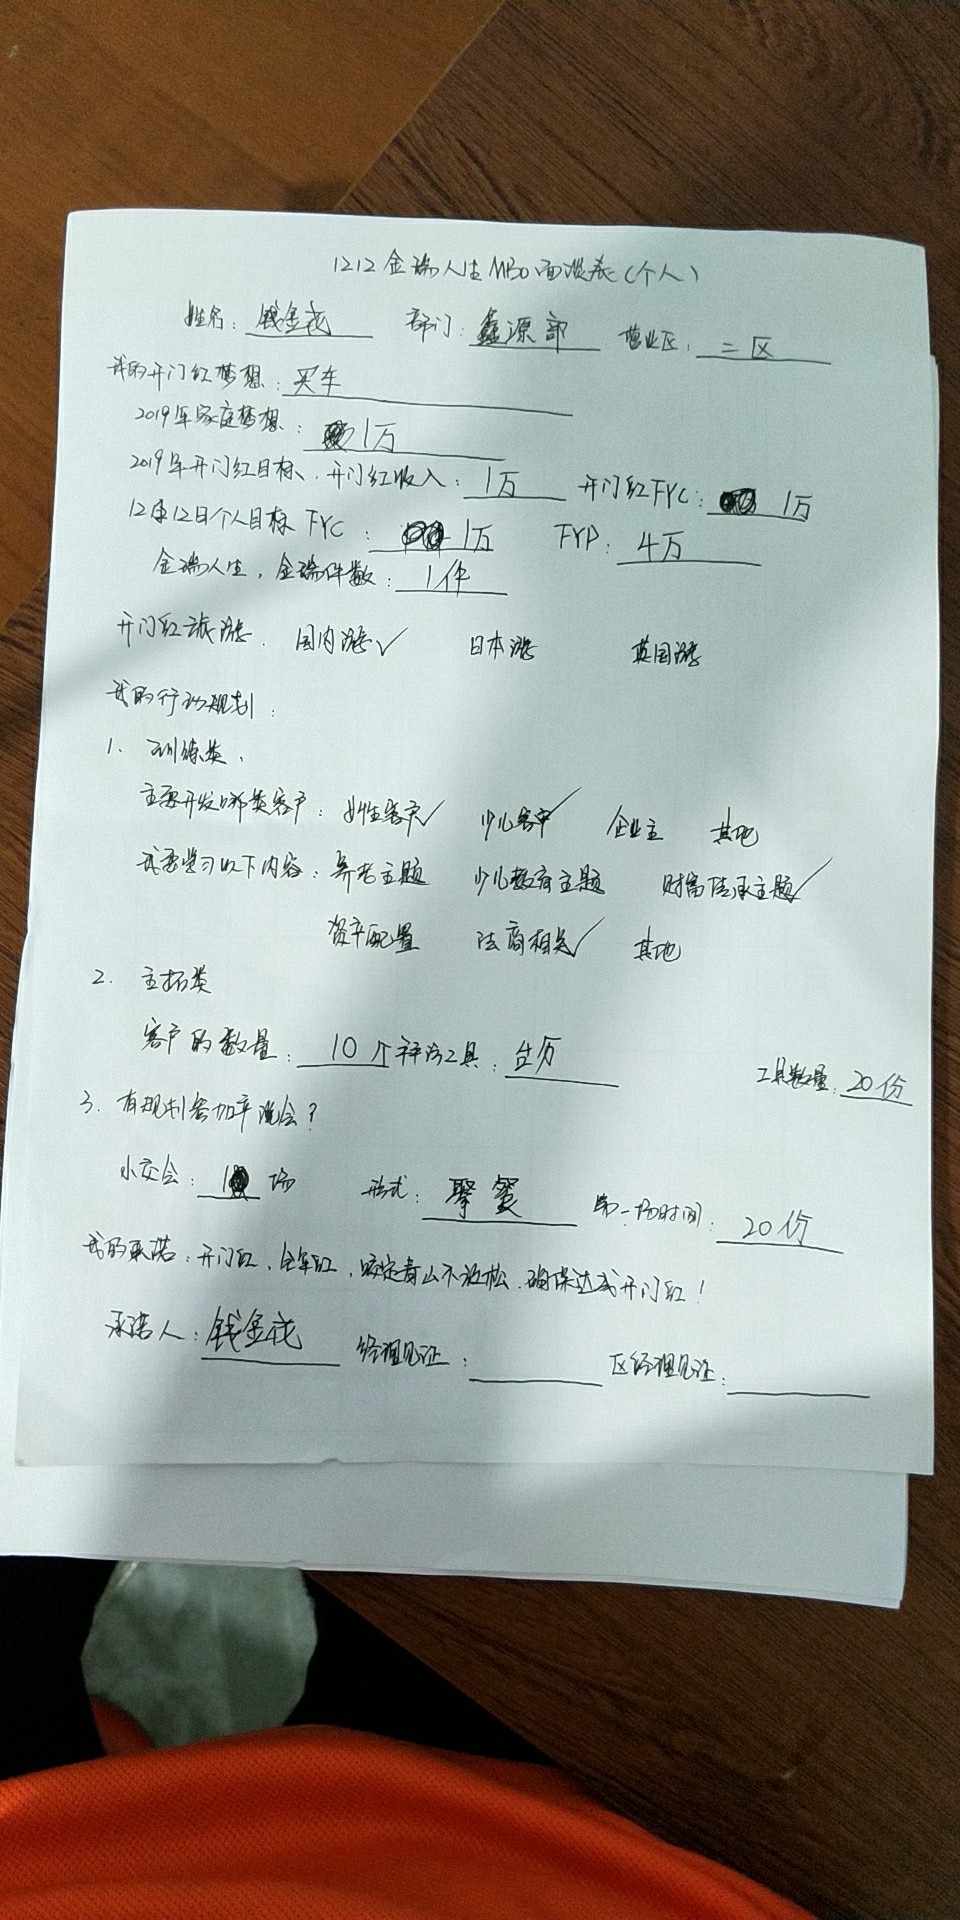 1212金瑞人生MBO面谈表(个人)
姓名:钱金花 部门:鑫源部 营业区:二区
我的开门红梦想:买车
2019年家庭梦想:1万
2019年开门红目标、开门红收入:1万 开门红FYC:1万
12月12日个人目标 FYC:1万 FYP:4万
金瑞人生,金瑞件数:1件
开门红旅游. 国内游✓ 日本游 英国游
我的行动规划:
1. 训练类、
主要开发哪类客户:女性客户✓ 少儿客户✓ 企业主 其他
我要学习以下内容:养老主题 少儿教育主题 财富传承主题✓
资产配置 法商相关✓ 其他
2. 主拓类
客户的数量:10个 拜访工具:台历 工具数量:20份
3. 有规划参加产说会?
小交会:1场 形式:聚餐 第一场时间:20份
我的承诺:开门红、全年红,咬定青山不放松.确保达成开门红!
承诺人:钱金花 经理见证: 区经理见证: